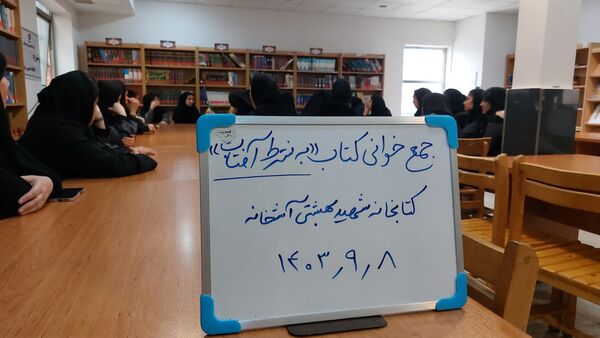 جمع خوانی کتاب «به شرط آفتاب»
کتابخانه شهید بهشتی آشخانه
۱۴۰۳٫۹٫۸